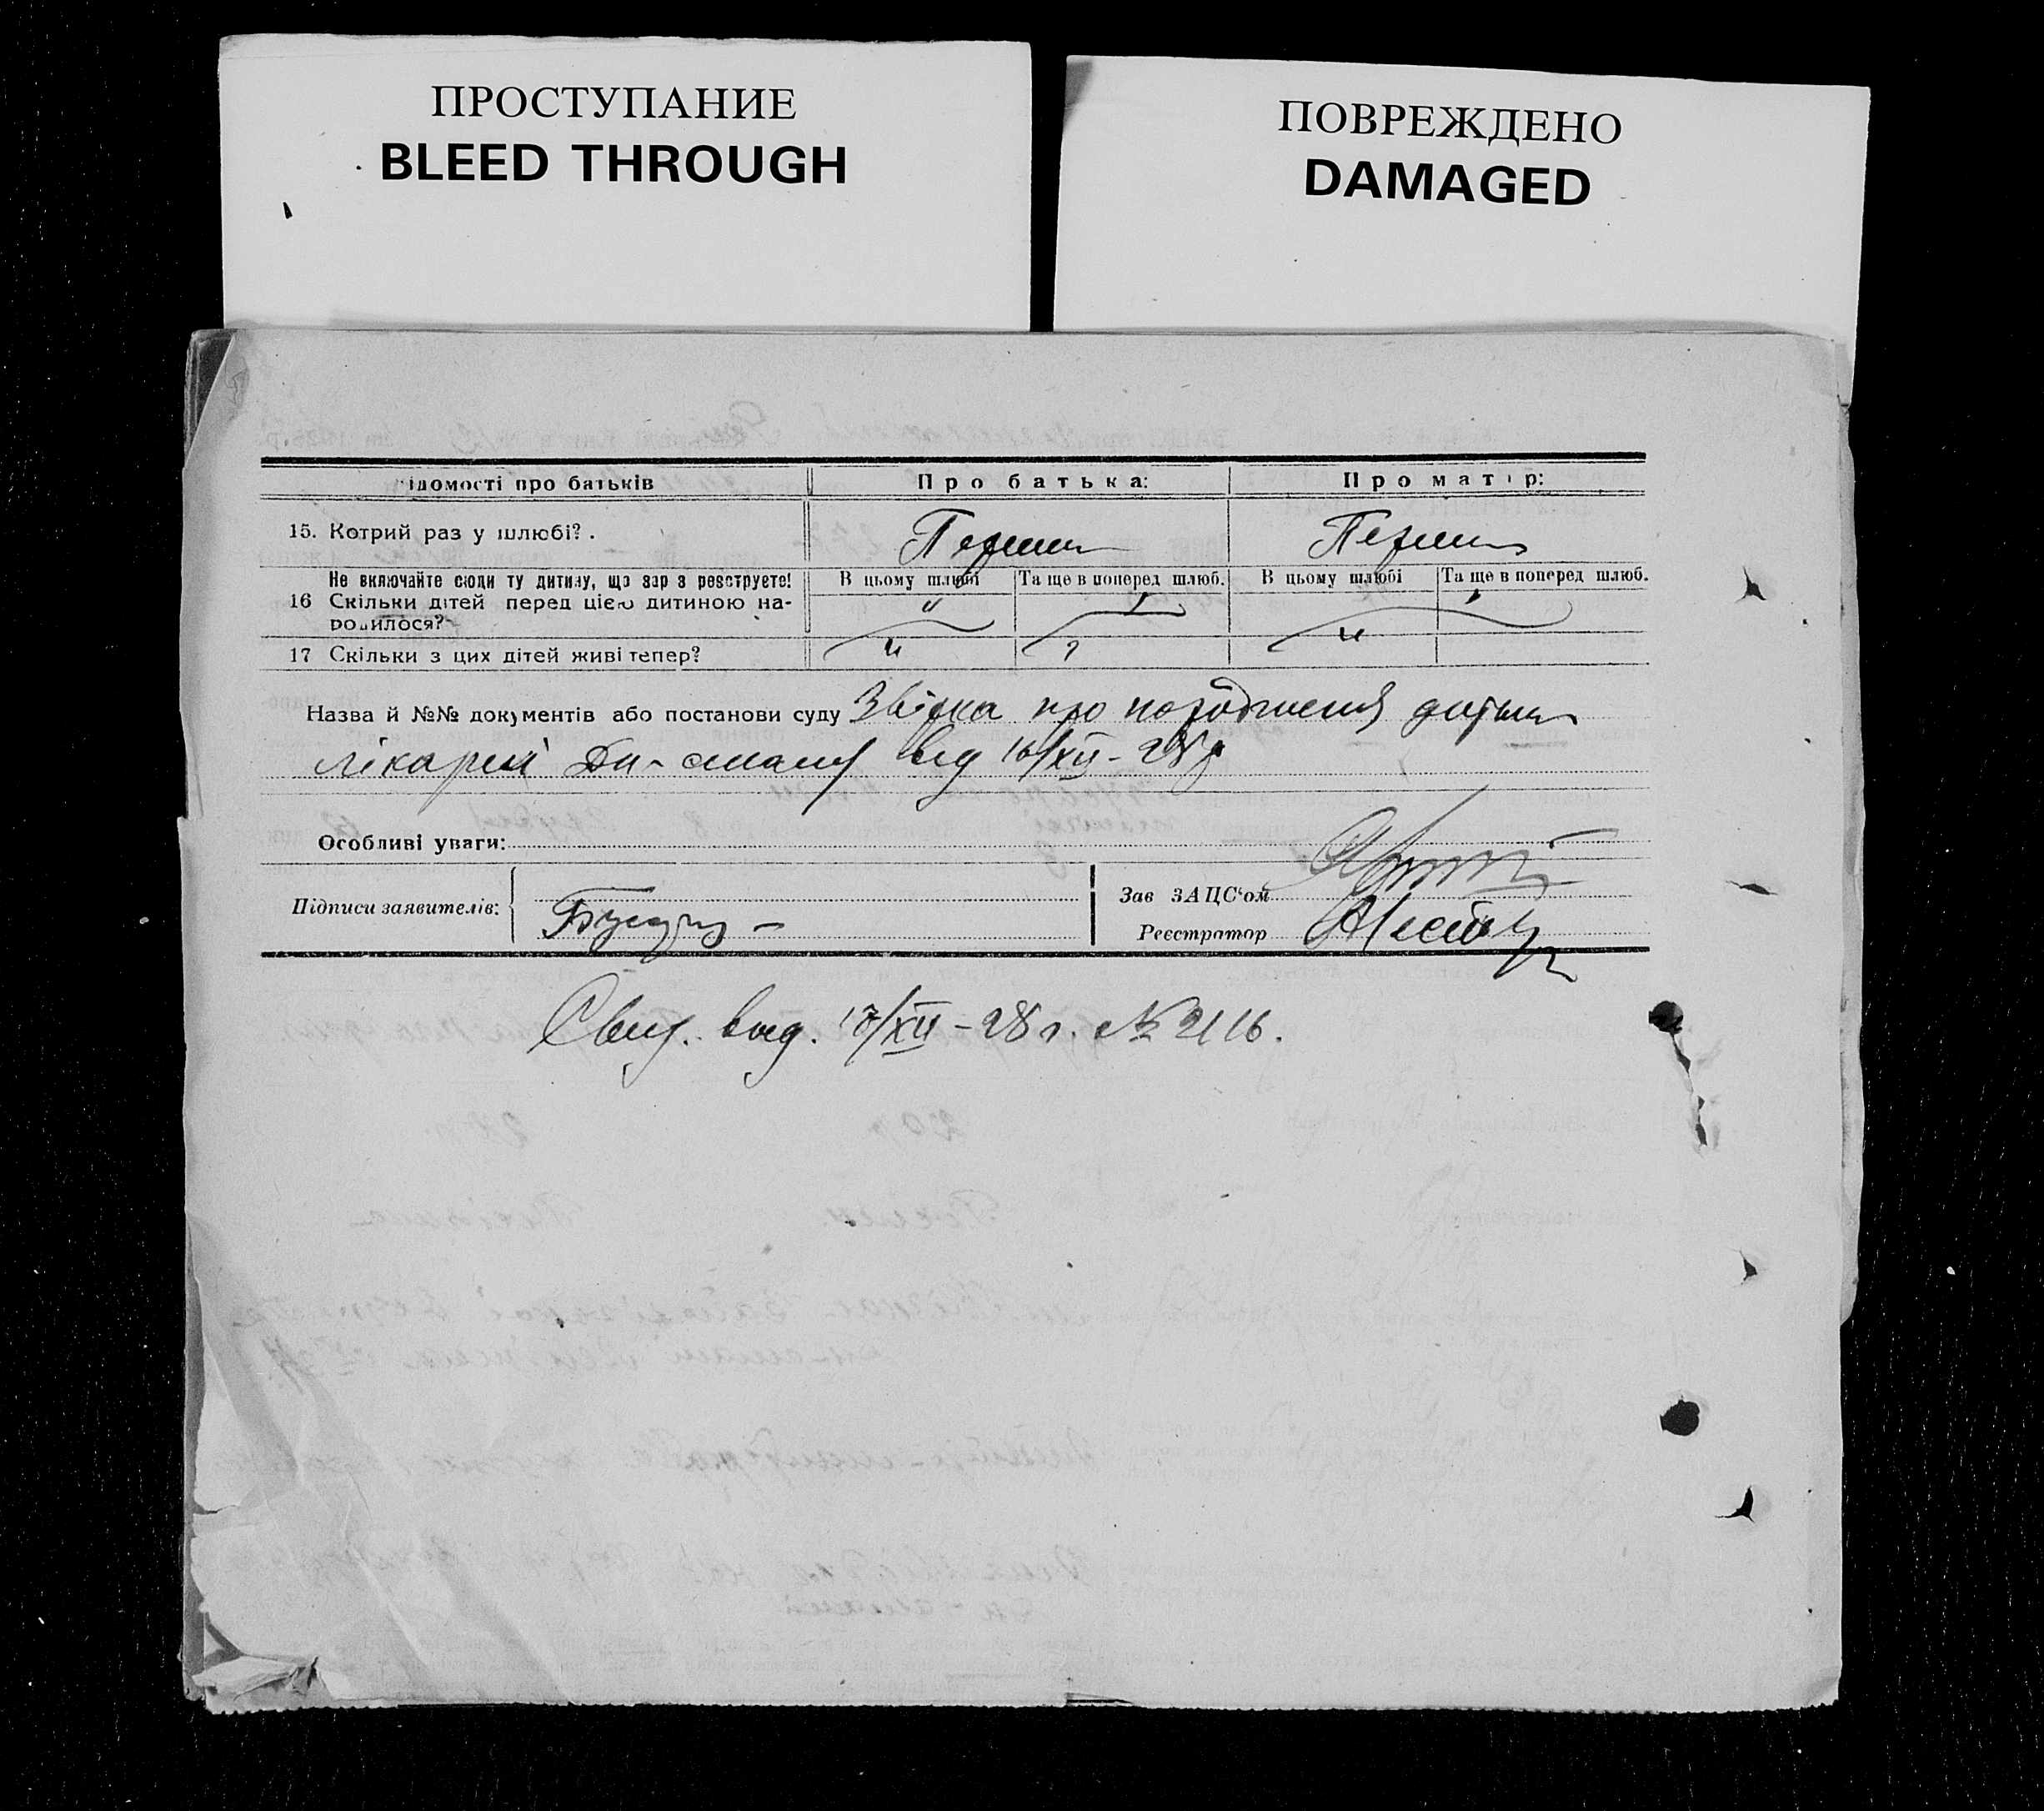 ПРОСТУПАНИЕ
BLEED THROUGH
ПОВРЕЖДЕНО
DAMAGED
ідомості про батьків
Про батька:
Про матір:
15. Котрий раз у шлюбі?.
Перший
Перший
Не включайте сюди ту дитину, що зараз реєструєте!
В цьому шлюбі
Та ще в поперед шлюб.
В цьому шлюбі
Та ще в поперед шлюб.
16 Скільки дітей перед цією дитиною на-
родилося?
17 Скільки з цих дітей живі тепер?
Назва й №№ документів або постанови суду Звідка про народження дитини
лікарні від 16/XII-28р
Особливі уваги:
Підписи заявителів:
Зав ЗАЦС'ом
Реєстратор
Свид. выд. 17/XII-28 г. № 2116.